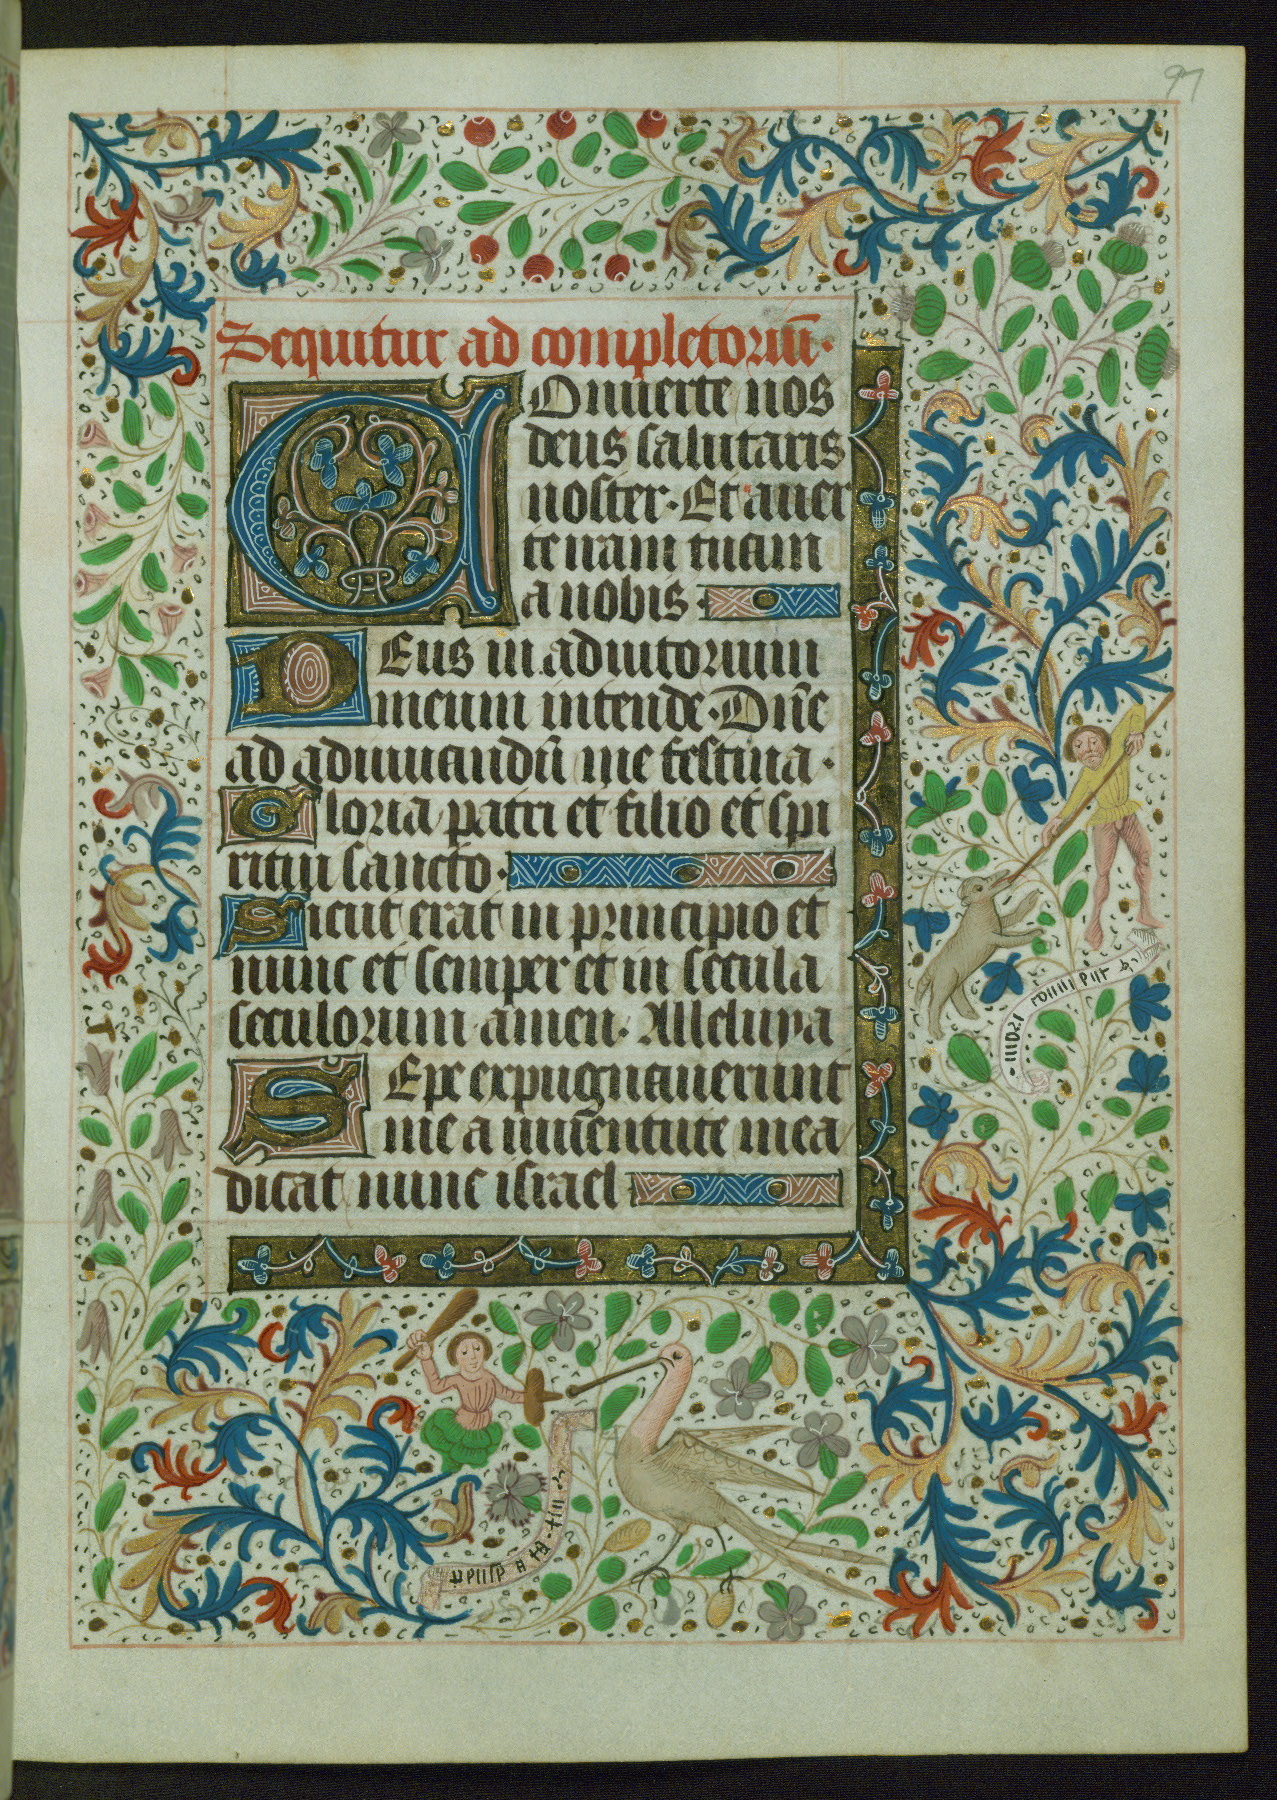 97
Sequitur ad completoriū·
COnuerte nos
deus salutaris
noster· Et auer
te iram tuam
a nobis·
DEus in adiutorium
meum intende· Dñe
ad adiuuandū me festina·
Gloria patri et filio et spi
ritui sancto·
Sicut erat in principio et
nunc et semper et in secula
seculorum amen· Alleluya
SEpe expugnauerunt
me a iuuētute mea
dicat nunc israel